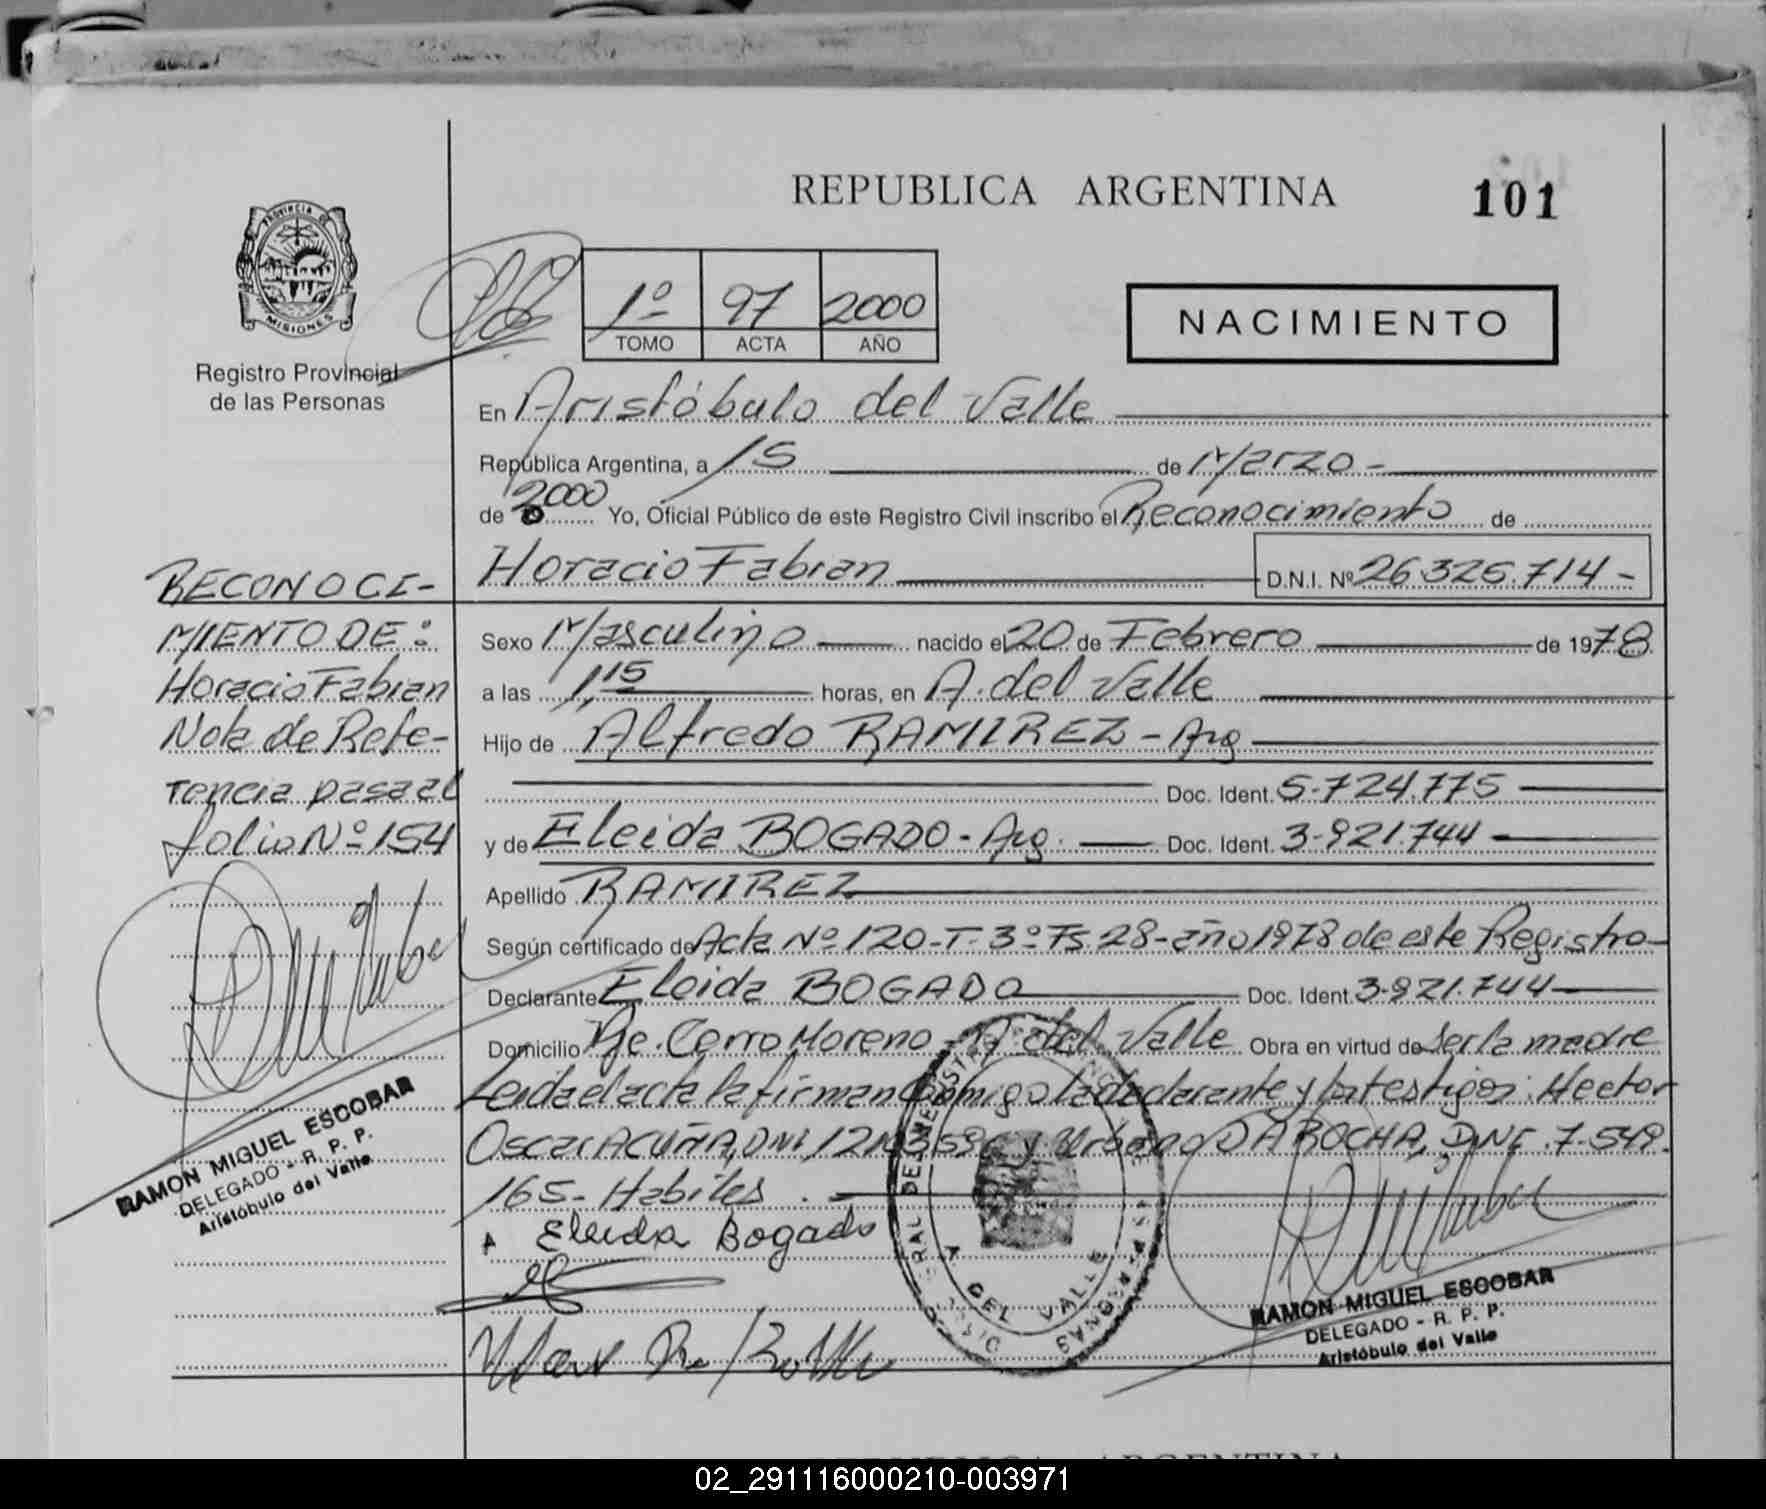 REPUBLICA ARGENTINA
101
PROVINCIA DE
MISIONES
Registro Provincial
de las Personas
1º 97 2000
TOMO ACTA AÑO
NACIMIENTO
En Aristóbulo del Valle
República Argentina, a 15 de Marzo -
de 2000 Yo, Oficial Público de este Registro Civil inscribo el Reconocimiento de
Horacio Fabian D.N.I. Nº 26.326.714 -
Sexo Masculino nacido el 20 de Febrero de 1978
a las 1,15 horas, en A. del Valle
Hijo de Alfredo RAMIREZ - Arg
Doc. Ident. 5.724.775
y de Eleida BOGADO - Arg. Doc. Ident. 3.921.744
Apellido RAMIREZ
Según certificado de Acta Nº 120 - T - 3º Fs 28 - año 1978 de este Registro -
Declarante Eleida BOGADO Doc. Ident. 3.921.744
Domicilio Pje. Cerro Moreno - A del Valle Obra en virtud de ser la madre
Leida el acta la firman conmigo la declarante y los testigos: Hector
Oscar ACUÑA, DNI y Urbano DA ROCHA, DNI. 7.549.
165 - Habiles.
Eleida Bogado
RECONOCI-
MIENTO DE:
Horacio Fabian
Nota de Refe-
rencia pasa al
folio Nº 154
RAMON MIGUEL ESCOBAR
DELEGADO - R. P. P.
Aristóbulo del Valle
A DEL VALLE
RAMON MIGUEL ESCOBAR
DELEGADO - R. P. P.
Aristóbulo del Valle
02_291116000210-003971